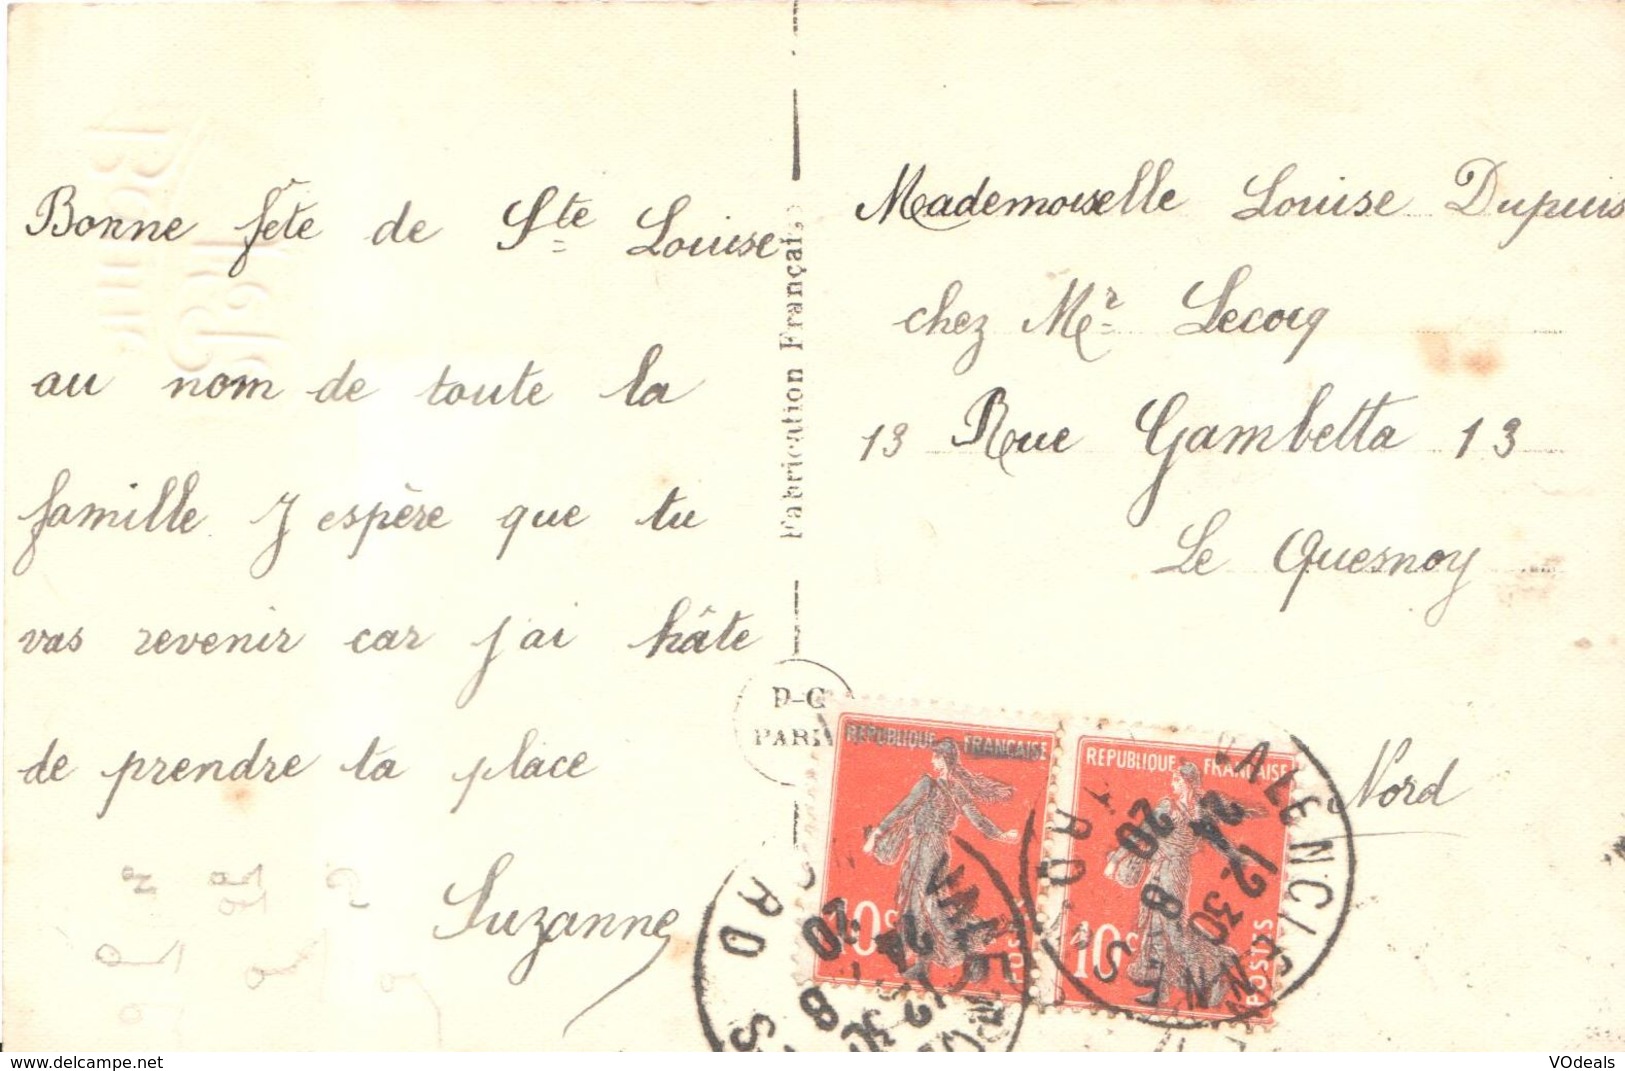 Bonne fête de Ste Louise
au nom de toute la
famille J espère que tu
vas revenir car j'ai hâte
de prendre ta place
Suzanne
Bonne
Fête
Fabrication Française
P-C
PARIS
Mademoiselle Louise Dupuis
chez Mr Lecocq
13 Rue Gambetta 13
Le Quesnoy
Nord
REPUBLIQUE FRANÇAISE
10c
POSTES
REPUBLIQUE FRANÇAISE
10c
POSTES
VALENCIENNES
12 30
24 8
20
delcampe.net
VOdeals